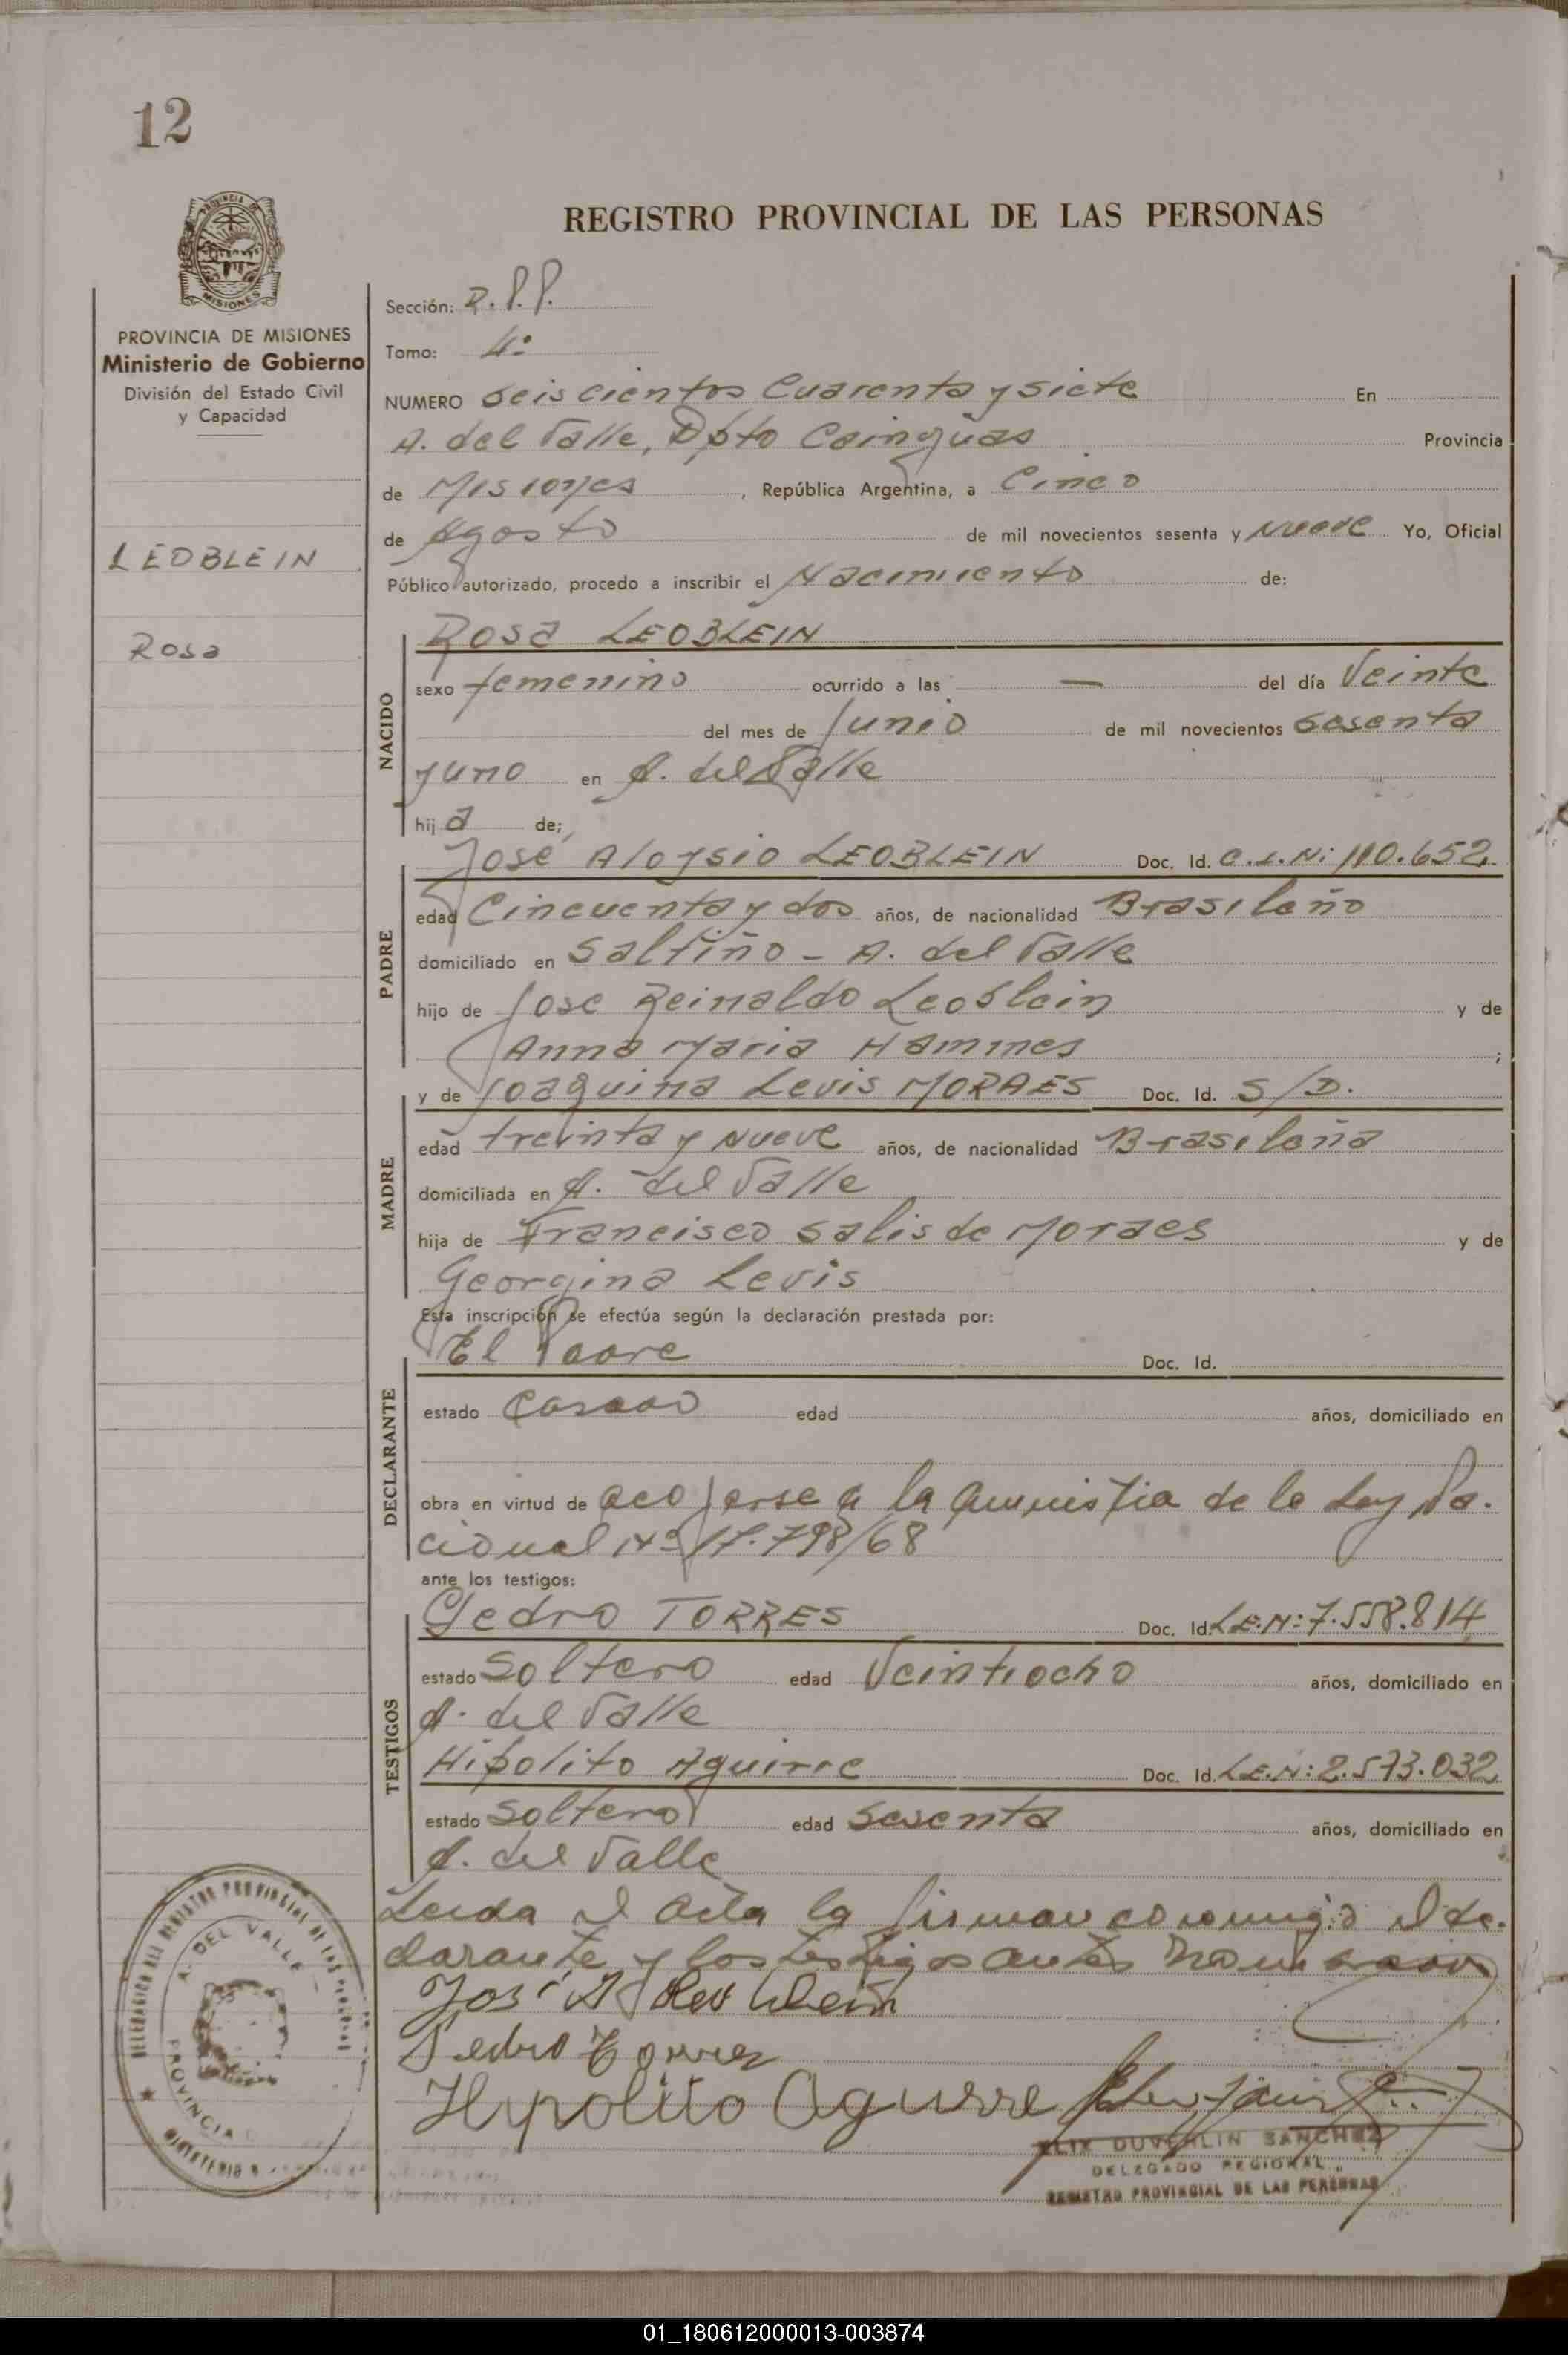 12
PROVINCIA DE MISIONES
Ministerio de Gobierno
División del Estado Civil
y Capacidad
LEOBLEIN
Rosa
REGISTRO PROVINCIAL DE LAS PERSONAS
Sección: R.P.P.
Tomo: 4º
NUMERO seiscientos Cuarenta y siete En
A. del Valle, Dpto Cainguas Provincia
de Misiones, República Argentina, a Cinco
de Agosto de mil novecientos sesenta y Nueve Yo, Oficial
Público autorizado, procedo a inscribir el Nacimiento de:
NACIDO
Rosa LEOBLEIN
sexo femenino ocurrido a las — del día Veinte
del mes de Junio de mil novecientos Sesenta
y uno en A. del Valle
hij a de;
PADRE
José Aloysio LEOBLEIN Doc. Id. C.I.N: 110.652
edad Cincuenta y dos años, de nacionalidad Brasileño
domiciliado en Saltiño - A. del Valle
hijo de Jose Reinaldo Leoblein y de
Anna Maria Hammes ;
MADRE
y de Joaquina Levis MORAES Doc. Id. S/D.
edad treinta y Nueve años, de nacionalidad Brasileña
domiciliada en A. del Valle
hija de Francisco Salis de Moraes y de
Georgina Levis
Esta inscripción se efectúa según la declaración prestada por:
DECLARANTE
El Padre Doc. Id.
estado Casado edad años, domiciliado en
obra en virtud de acojerse a la Amnistia de la Ley Na-
cional Nº 17.798/68
ante los testigos:
TESTIGOS
Pedro TORRES Doc. Id. L.E.N: 7.558.814
estado Soltero edad Veintiocho años, domiciliado en
A. del Valle
Hipolito Aguirre Doc. Id. L.E.N: 2.573.032
estado Soltero edad Sesenta años, domiciliado en
A. del Valle
Leida el Acta la firman conmigo el de-
clarante y los testigos antes
Pedro Torres
Hypolito Aguirre
DUVERLIN SANCHEZ
DELEGADO REGIONAL
REGISTRO PROVINCIAL DE LAS PERSONAS
A. DEL VALLE
01_180612000013-003874